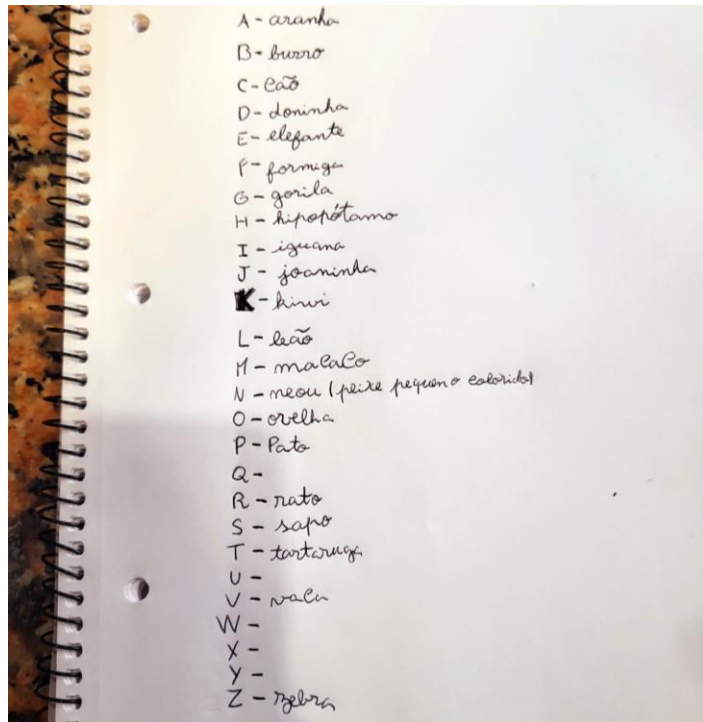 A - aranha
B - burro
C - cão
D - doninha
E - elefante
F - formiga
G - gorila
H - hipopótamo
I - iguana
J - joaninha
K - kiwi
L - leão
M - macaco
N - neou (peixe pequeno colorido)
O - ovelha
P - Pato
Q -
R - rato
S - sapo
T - tartaruga
U -
V - vaca
W -
X -
Y -
Z - zebra